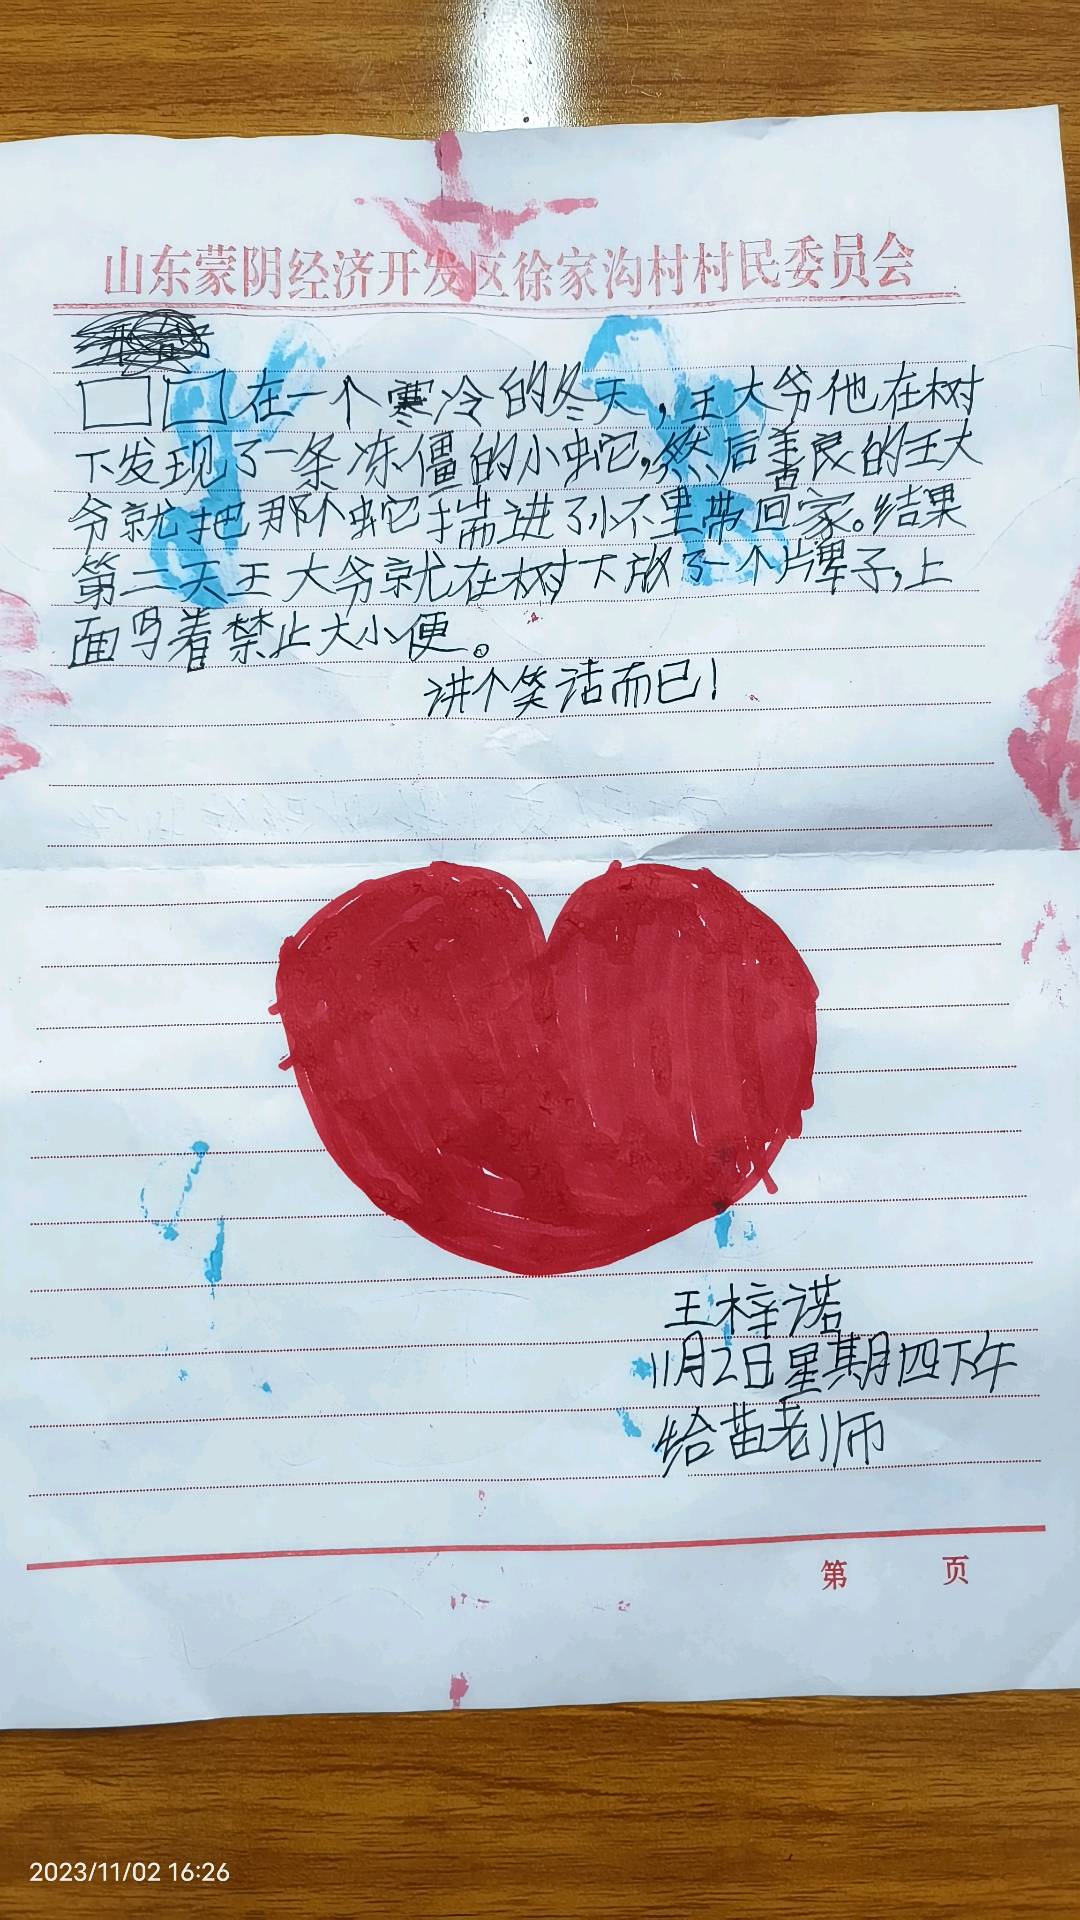 山东蒙阴经济开发区徐家沟村村民委员会
□□在一个寒冷的冬天，王大爷他在树
下发现了一条冻僵的小蛇，然后善良的王大
爷就把那个蛇揣进了怀里带回家。结果
第二天王大爷就在树下放了一个牌子，上
面写着禁止大小便。
讲个笑话而已！
王梓诺
11月2日星期四下午
给苗老师
第 页
2023/11/02 16:26